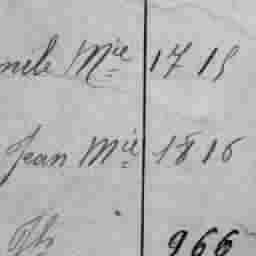 Mie 1715
Jean Mie 1816
966